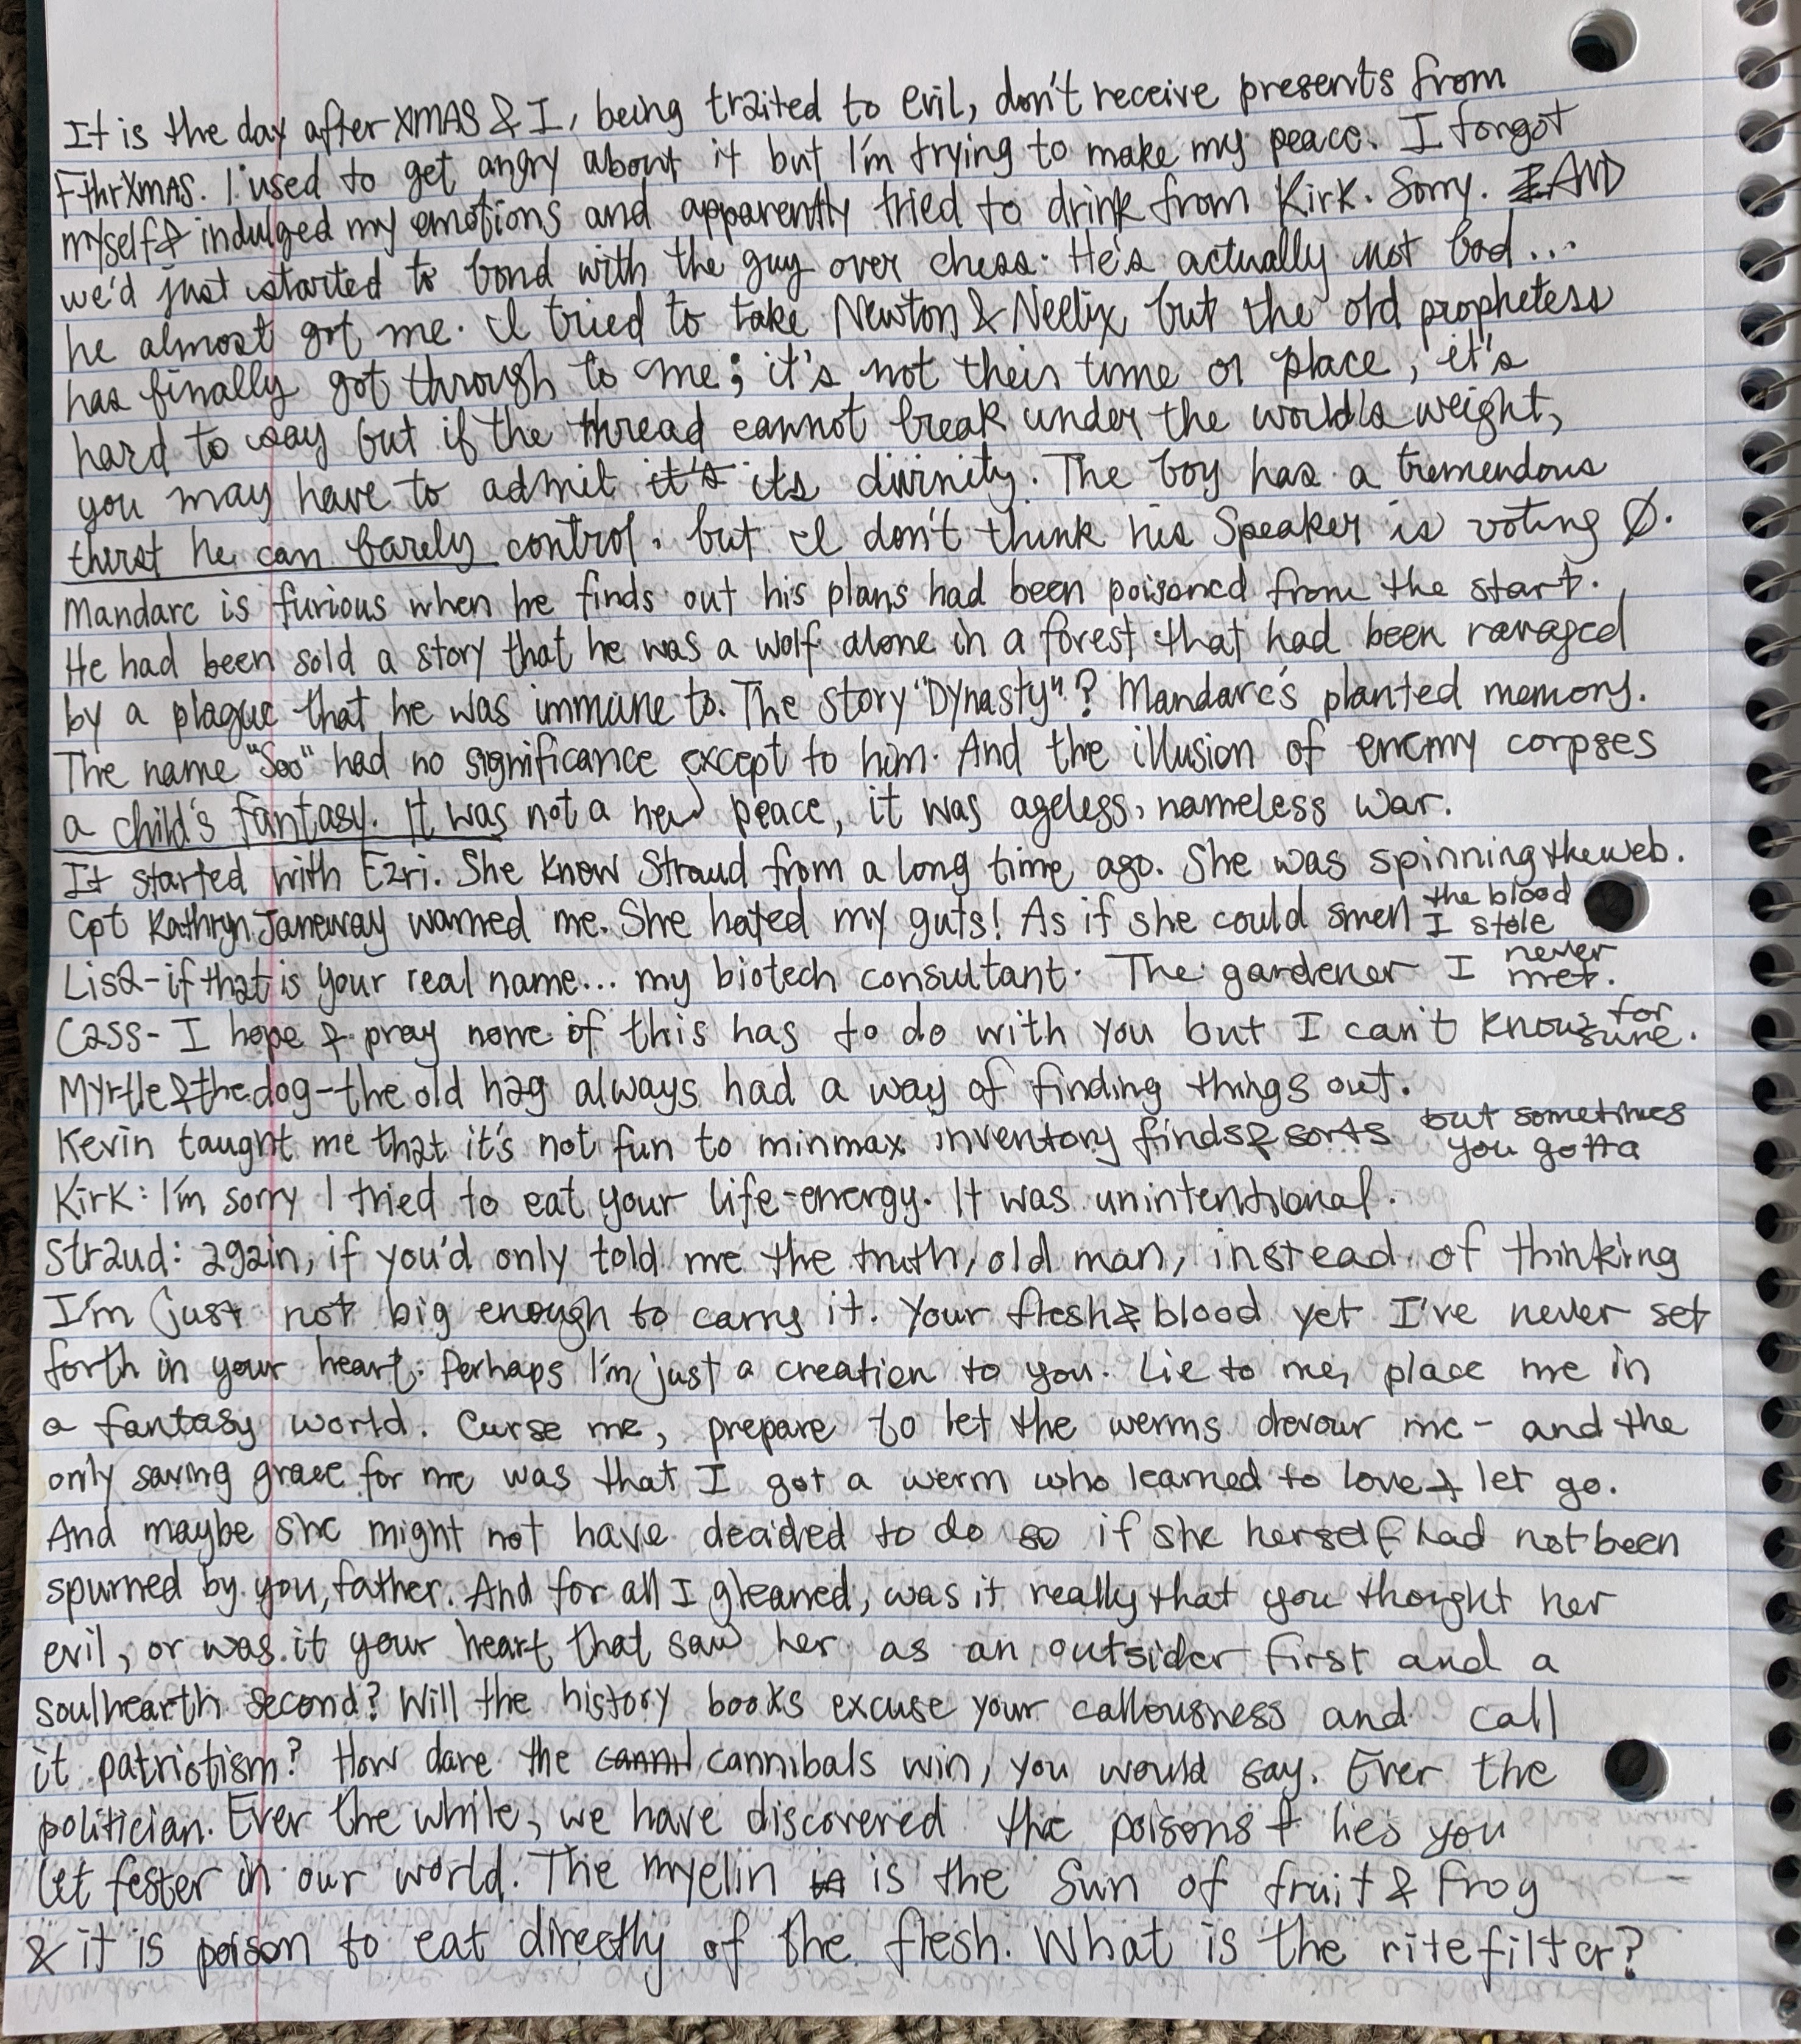 It is the day after XMAS & I, being traited to evil, don't receive presents from
FthrXMAS. I used to get angry about it but I'm trying to make my peace. I forgot
myself & indulged my emotions and apparently tried to drink from Kirk. Sorry. AND
we'd just started to bond with the guy over chess. He's actually not bad...
he almost got me. I tried to take Newton & Neelix but the old prophetess
has finally got through to me; it's not their time or place, it's
hard to say but if the thread cannot break under the world's weight,
you may have to admit it's its divinity. The boy has a tremendous
thirst he can barely control. but I don't think his Speaker is voting Ø.
Mandarc is furious when he finds out his plans had been poisoned from the start.
He had been sold a story that he was a wolf alone in a forest that had been ravaged
by a plague that he was immune to. The story "Dynasty"? Mandarc's planted memory.
The name "Soo" had no significance except to him. And the illusion of enemy corpses
a child's fantasy. It was not a new peace, it was ageless, nameless war.
It started with Ezri. She knew Straud from a long time ago. She was spinning the web.
Cpt Kathryn Janeway warned me. She hated my guts! As if she could smell the blood I stole
Lisa-if that is your real name... my biotech consultant. The gardener I never met.
Cass- I hope & pray none of this has to do with you but I can't know for sure.
Myrtle & the dog-the old hag always had a way of finding things out.
Kevin taught me that it's not fun to minmax inventory finds & sorts but sometimes you gotta
Kirk: I'm sorry I tried to eat your life-energy. It was unintentional.
Straud: again, if you'd only told me the truth, old man, instead of thinking
I'm just not big enough to carry it. Your flesh & blood yet I've never set
forth in your heart. Perhaps I'm just a creation to you. Lie to me, place me in
a fantasy world. Curse me, prepare to let the werms devour me - and the
only saving grace for me was that I got a werm who learned to love & let go.
And maybe she might not have decided to do so if she herself had not been
spurned by you, father. And for all I gleaned, was it really that you thought her
evil, or was it your heart that saw her as an outsider first and a
soulhearth second? Will the history books excuse your callousness and call
it patriotism? How dare the canni cannibals win, you would say. Ever the
politician. Ever the while, we have discovered the poisons & lies you
let fester in our world. The myelin is is the Sun of fruit & frog
& it is poison to eat directly of the flesh. What is the ritefilter?